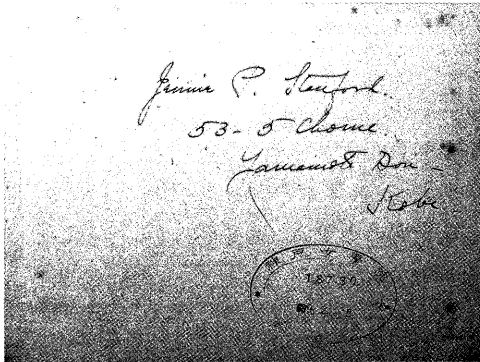 Jennie P. Stanford.
53-5 Chome.
Yamamoto Dori
Kobe